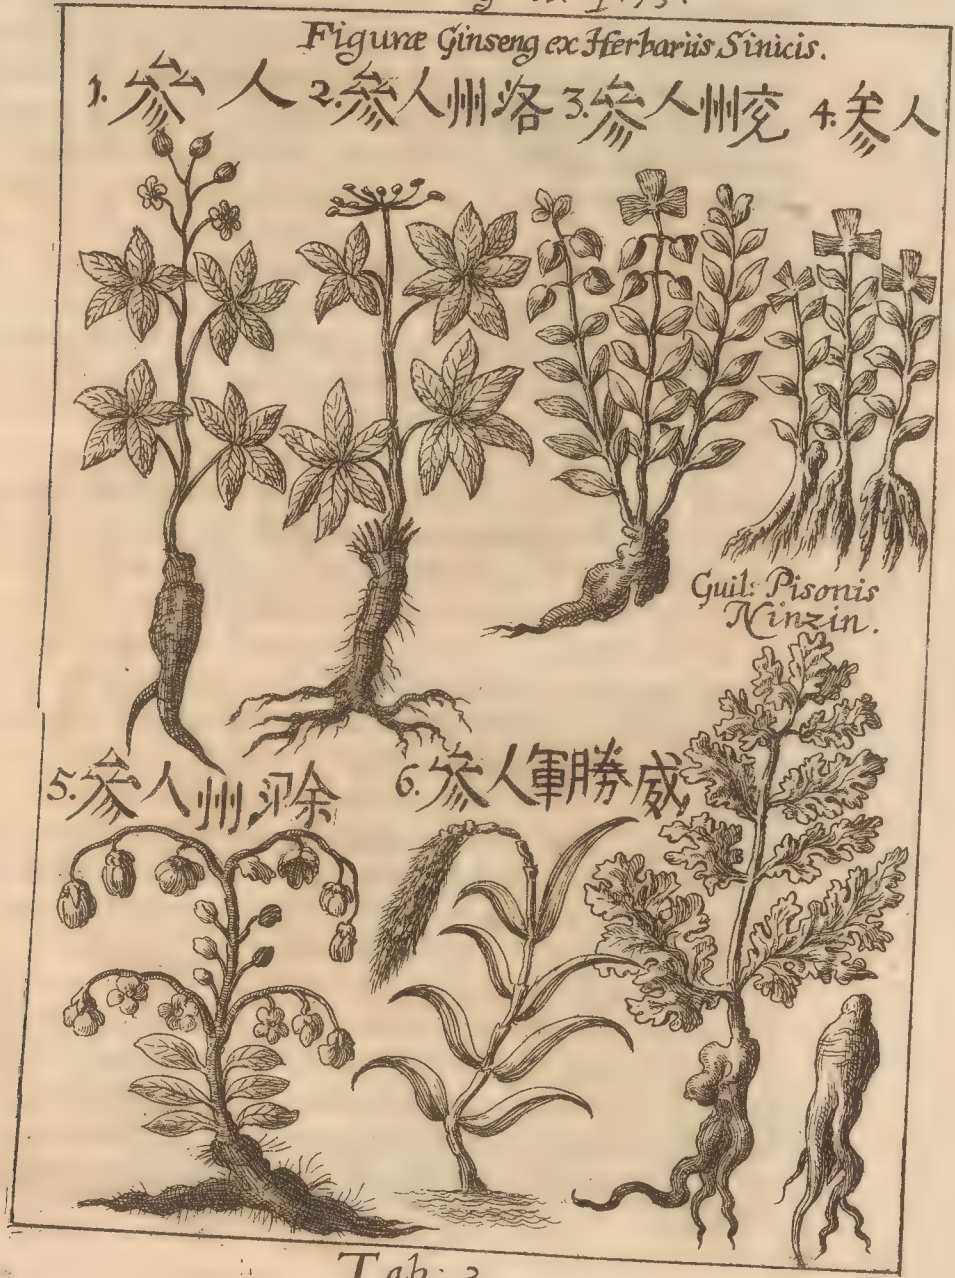 Figuræ Ginseng ex Herbariis Sinicis.
1. 參人 2. 參人州洛 3. 參人州兗 4. 参人
Guil: Pisonis
Ninzin.
5. 參人州滁 6. 參人軍勝威
Tab: 3